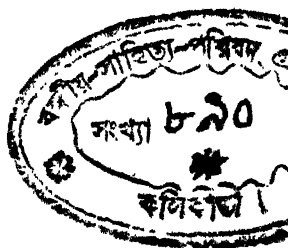 বঙ্গীয়-সাহিত্য-পরিষদ্
সংখ্যা ৮৯০
কলিকাতা।